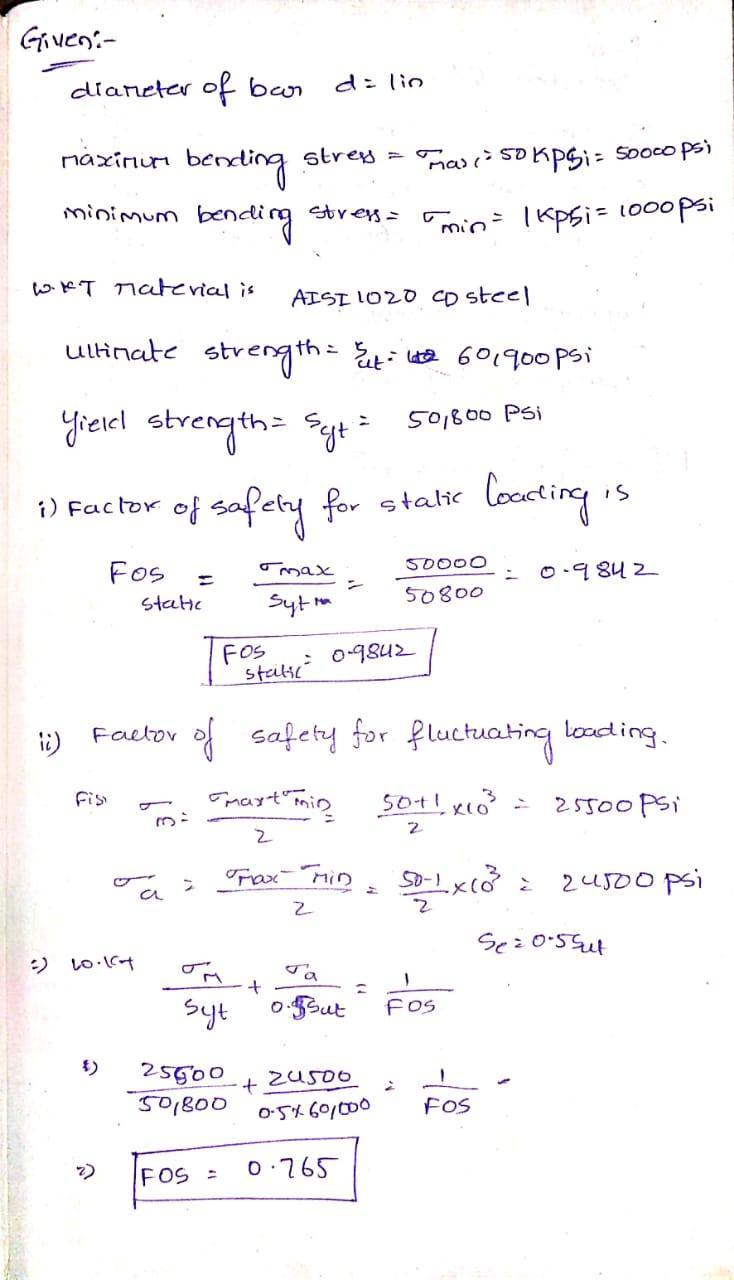 Given:-
diameter of bar d = 1in
maximum bending stress = σmax = 50 Kpsi = 50000 psi
minimum bending stress = σmin = 1 Kpsi = 1000 psi
W.K.T material is AISI 1020 CD steel
ultimate strength = Sut = 60,900 psi
Yield strength = Syt = 50,800 Psi
i) Factor of safety for static loading is
FOS static = σmax / Syt = 50000 / 50800 = 0.9842
FOS static = 0.9842
ii) Factor of safety for fluctuating loading.
σm = σmax + σmin / 2 = 50+1 / 2 × 10³ = 25500 Psi
σa = σmax - σmin / 2 = 50-1 / 2 × 10³ = 24500 psi
Se = 0.5Sut
=) W.K.T σm / Syt + σa / 0.5Sut = 1 / FOS
25500 / 50,800 + 24500 / 0.5 × 60,000 = 1 / FOS
=) FOS = 0.765